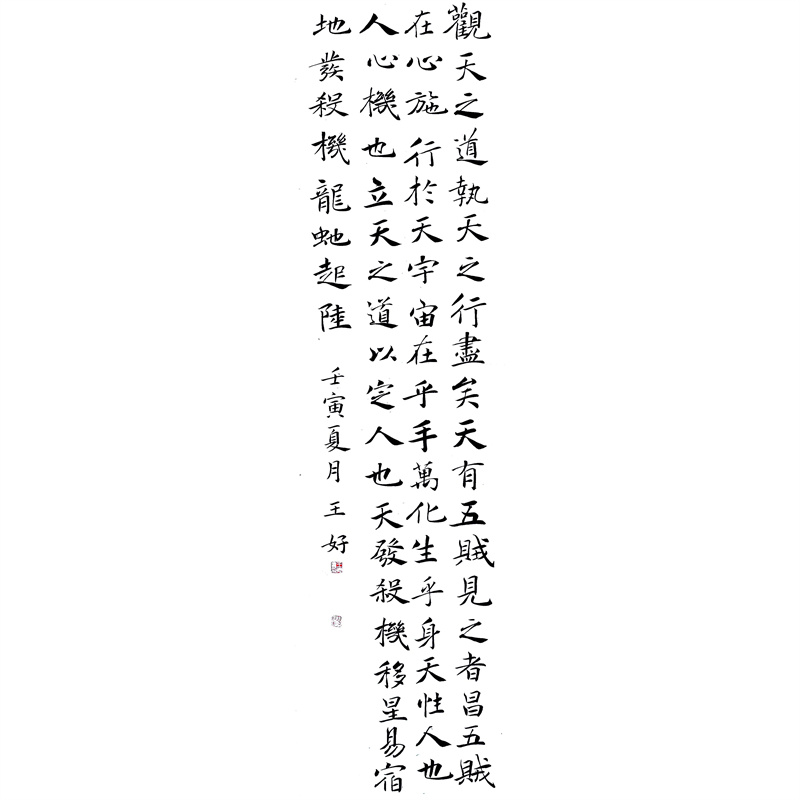 觀天之道執天之行盡矣天有五賊見之者昌五賊
在心施行於天宇宙在乎手萬化生乎身天性人也
人心機也立天之道以定人也天發殺機移星易宿
地發殺機龍虵起陸
壬寅夏月王好